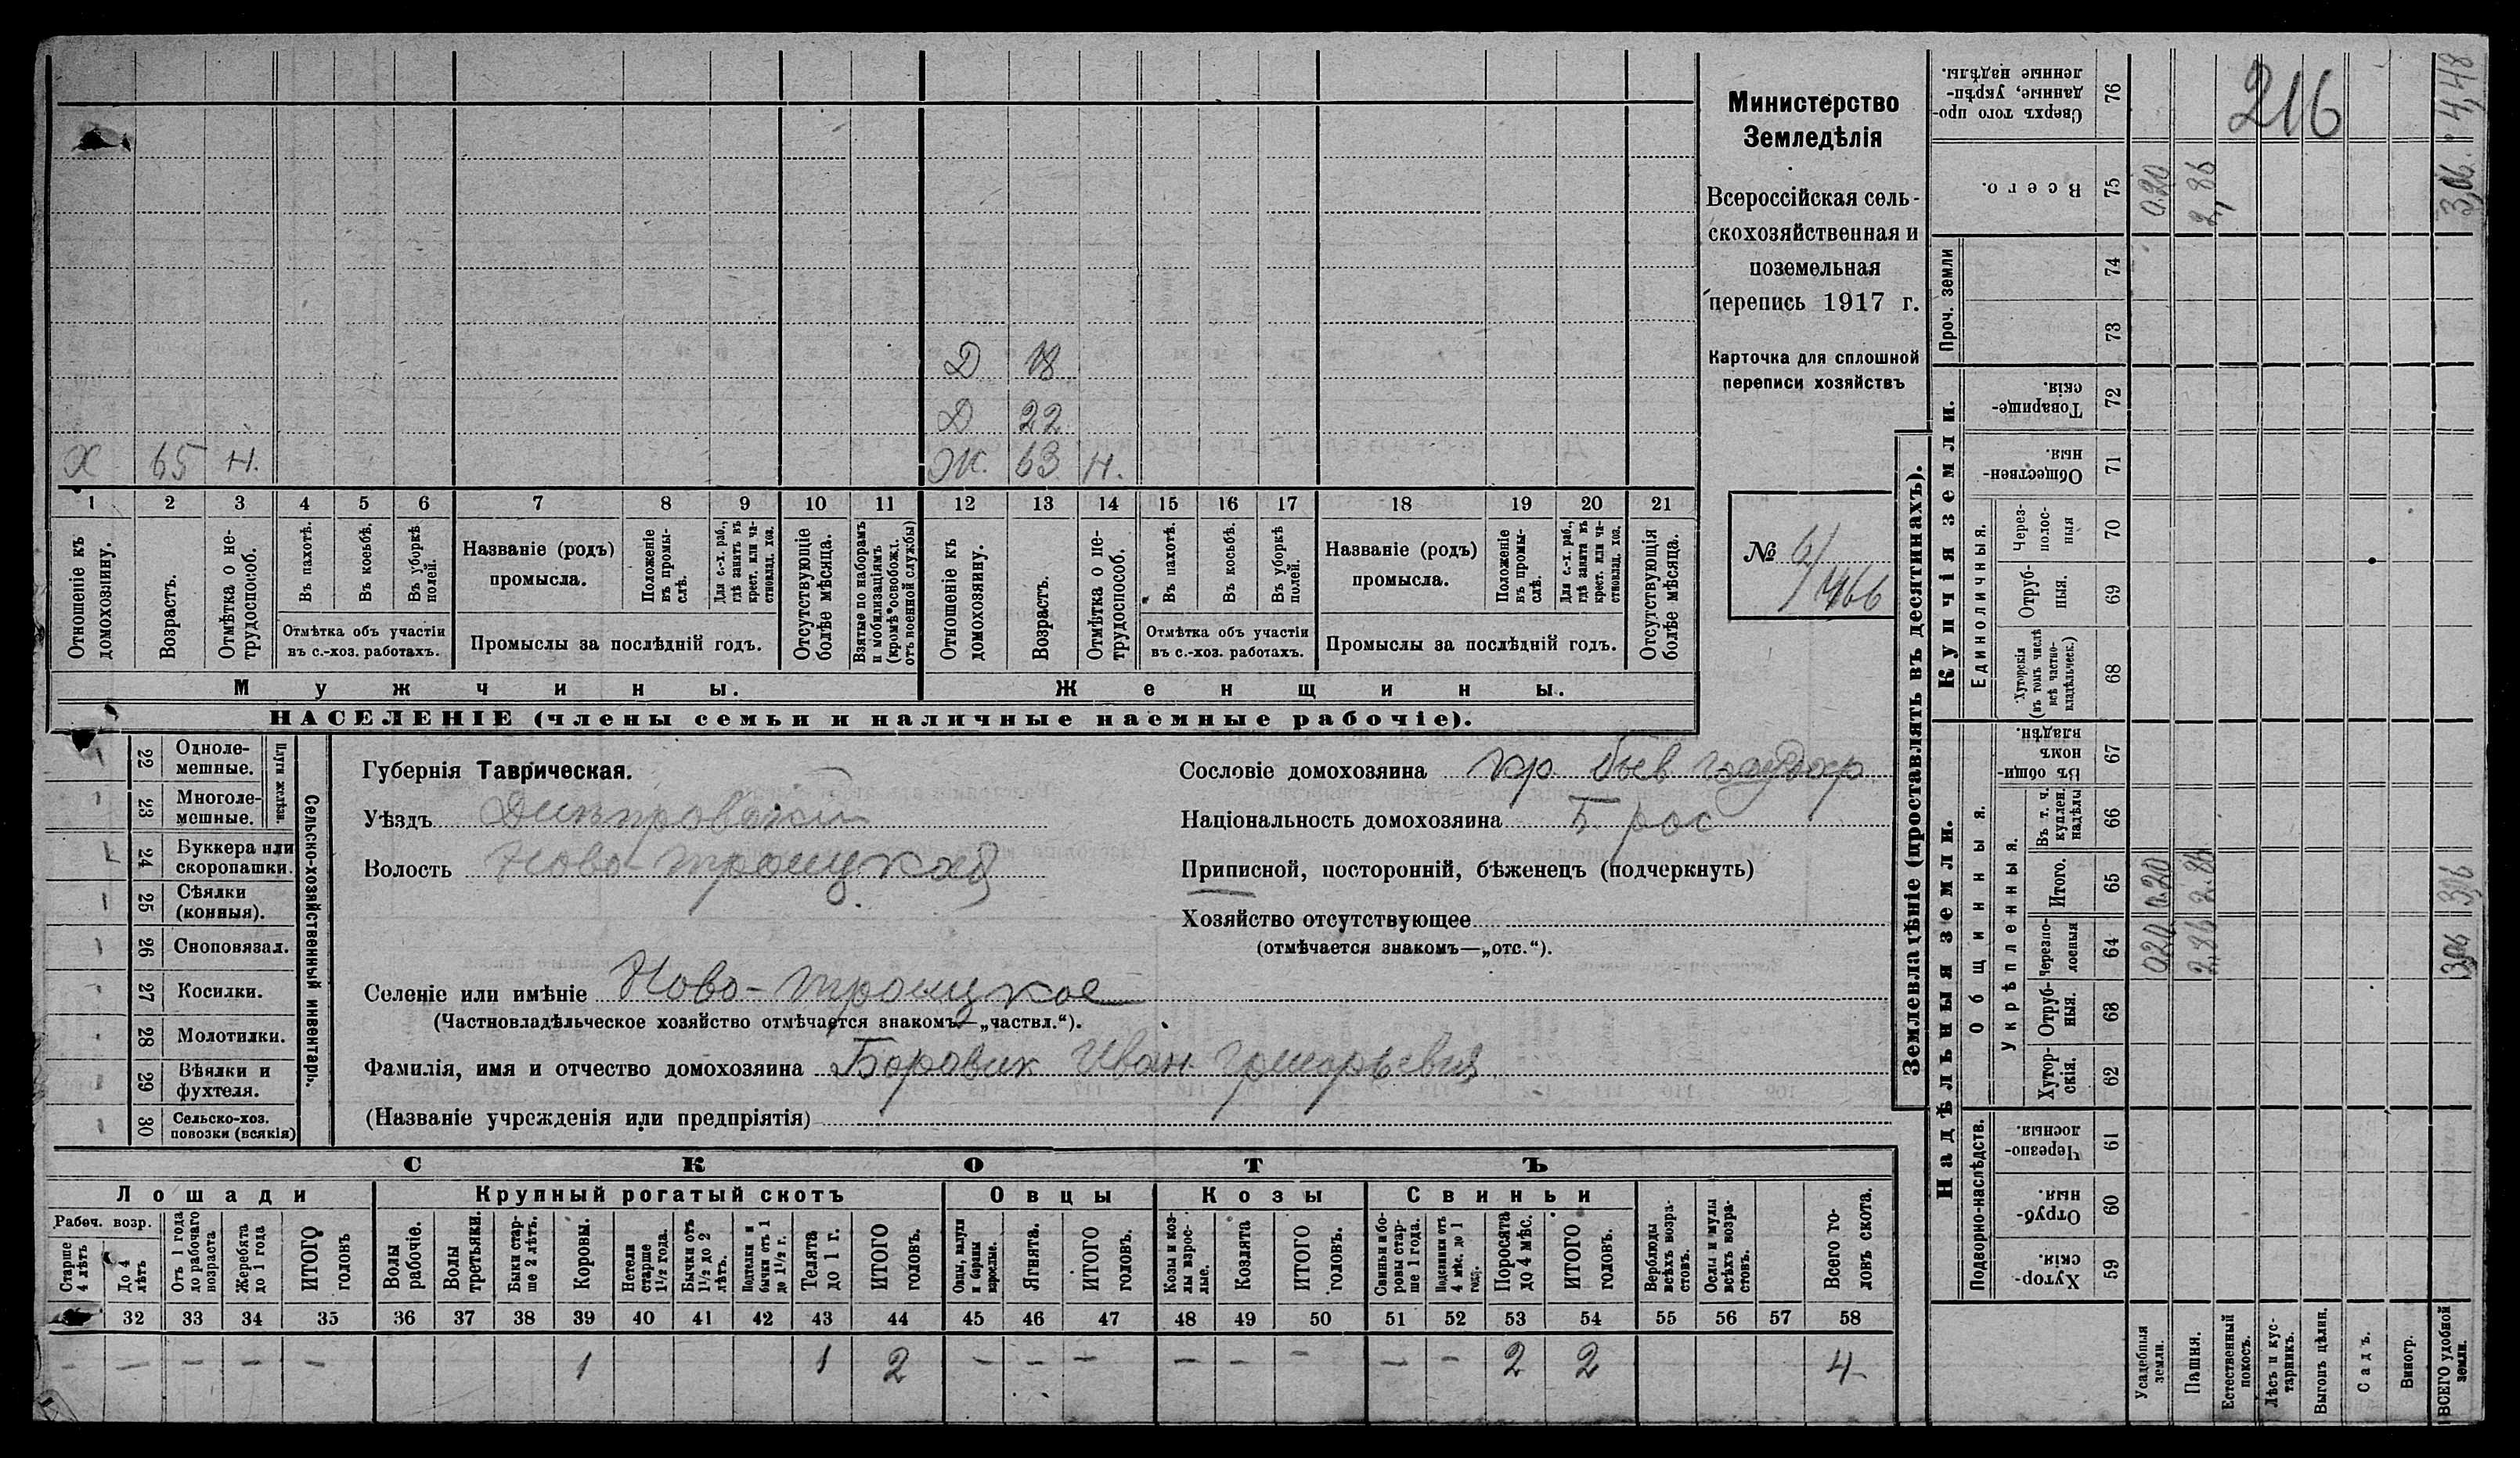 Министерство
Земледѣлія
Всероссійская сель-
скохозяйственная и
поземельная
перепись 1917 г.
Карточка для сплошной
переписи хозяйствъ
№ 6/
1466
Д 18
Д 22
Х 65 Н. Ж. 63 Н.
1 2 3 4 5 6 7 8 9 10 11 12 13 14 15 16 17 18 19 20 21
Отношеніе къ домохозяину.
Возрастъ.
Отмѣтка о не-трудоспособ.
Въ пахотѣ.
Въ косьбѣ.
Въ уборкѣ полей.
Отмѣтка объ участіи
въ с.-хоз. работахъ.
Названіе (родъ)
промысла.
Положеніе въ промы-слѣ.
Для с.-х. раб., гдѣ занятъ въ крест. или ча-стновлад. хоз.
Промыслы за послѣдній годъ.
Отсутствующіе болѣе мѣсяца.
Взятые по наборамъ и мобилизаціямъ (кромѣ освобожд. отъ военной службы)
Отношеніе къ домохозяину.
Возрастъ.
Отмѣтка о не-трудоспособ.
Въ пахотѣ.
Въ косьбѣ.
Въ уборкѣ полей.
Отмѣтка объ участіи
въ с.-хоз. работахъ.
Названіе (родъ)
промысла.
Положеніе въ промы-слѣ.
Для с.-х. раб., гдѣ занята въ крест. или ча-стновлад. хоз.
Промыслы за послѣдній годъ.
Отсутствующія болѣе мѣсяца.
Мужчины.
Женщины.
НАСЕЛЕНІЕ (члены семьи и наличные наемные рабочіе).
Сельско-хозяйственный инвентарь.
Плуги желѣзн.
22 Одноле-
мешные.
23 Многоле-
мешные.
24 Буккера или
скоропашки.
25 Сѣялки
(конныя).
26 Сноповязал.
27 Косилки.
28 Молотилки.
29 Вѣялки и
фухтеля.
30 Сельско-хоз.
повозки (всякія)
Губернія Таврическая.
Уѣздъ Днѣпровскій
Волость Ново-троицкая
Селеніе или имѣніе Ново-троицкое
(Частновладѣльческое хозяйство отмѣчается знакомъ—„частвл.“).
Фамилія, имя и отчество домохозяина Боровик Иван Григорьевич
(Названіе учрежденія или предпріятія)
Сословіе домохозяина кр. быв государ
Національность домохозяина Б. рос
Приписной, посторонній, бѣженецъ (подчеркнуть)
Хозяйство отсутствующее
(отмѣчается знакомъ—„отс.“).
СКОТЪ
Лошади Крупный рогатый скотъ Овцы Козы Свиньи
Рабоч. возр.
Старше 4 лѣтъ
До 4 лѣтъ
Отъ 1 года до рабочаго возраста
Жеребята до 1 года
ИТОГО головъ
Волы рабочіе.
Волы третьяки.
Быки стар-ше 2 лѣтъ.
Коровы.
Нетели старше 1½ года.
Бычки отъ 1½ до 2 лѣтъ.
Подтелки и бычки отъ 1 до 1½ г.
Телята до 1 г.
ИТОГО головъ.
Овцы, валухи и бараны взрослые.
Ягнята.
ИТОГО головъ.
Козы и коз-лы взрос-лые.
Козлята
ИТОГО головъ.
Свиньи и бо-ровы стар-ше 1 года.
Подсвинки отъ 4 мѣс. до 1 года.
Поросята до 4 мѣс.
ИТОГО головъ.
Верблюды всѣхъ возра-стовъ.
Ослы и мулы всѣхъ возра-стовъ.
Всего го-ловъ скота.
32 33 34 35 36 37 38 39 40 41 42 43 44 45 46 47 48 49 50 51 52 53 54 55 56 57 58
– – – – – 1 1 2 – – – – – – – – 2 2 4
Землевладѣніе (проставлять въ десятинахъ).
Купчія земли.
Надѣльныя земли.
Сверхъ того про-данные, укрѣп-ленные надѣлы. 76 216 4,48
Всего. 75 0.20 2,86 3,06.
Проч. земли
74
73
Товарище-скія. 72
Обществен-ныя. 71
Единоличныя.
Через-полос-ныя 70
Отруб-ныя. 69
Хуторскія (въ томъ числѣ всѣ частно-владѣльческ.) 68
Общинныя.
Въ общин-номъ владѣн. 67
Укрѣпленныя.
Въ т. ч. куплен. надѣлы 66
Итого. 65 0.20 2.86 3,06
Черезпо-лосныя 64 0.20 2,86 3,06
Отруб-ныя. 63
Хутор-скія. 62
Подворно-наслѣдств.
Черезпо-лосныя. 61
Отруб-ныя. 60
Хутор-скія 59
Усадебныя земли.
Пашня.
Естественный покосъ.
Лѣсъ и кус-тарникъ.
Выгонъ цѣлин.
Садъ.
Виногр.
ВСЕГО удобной земли.